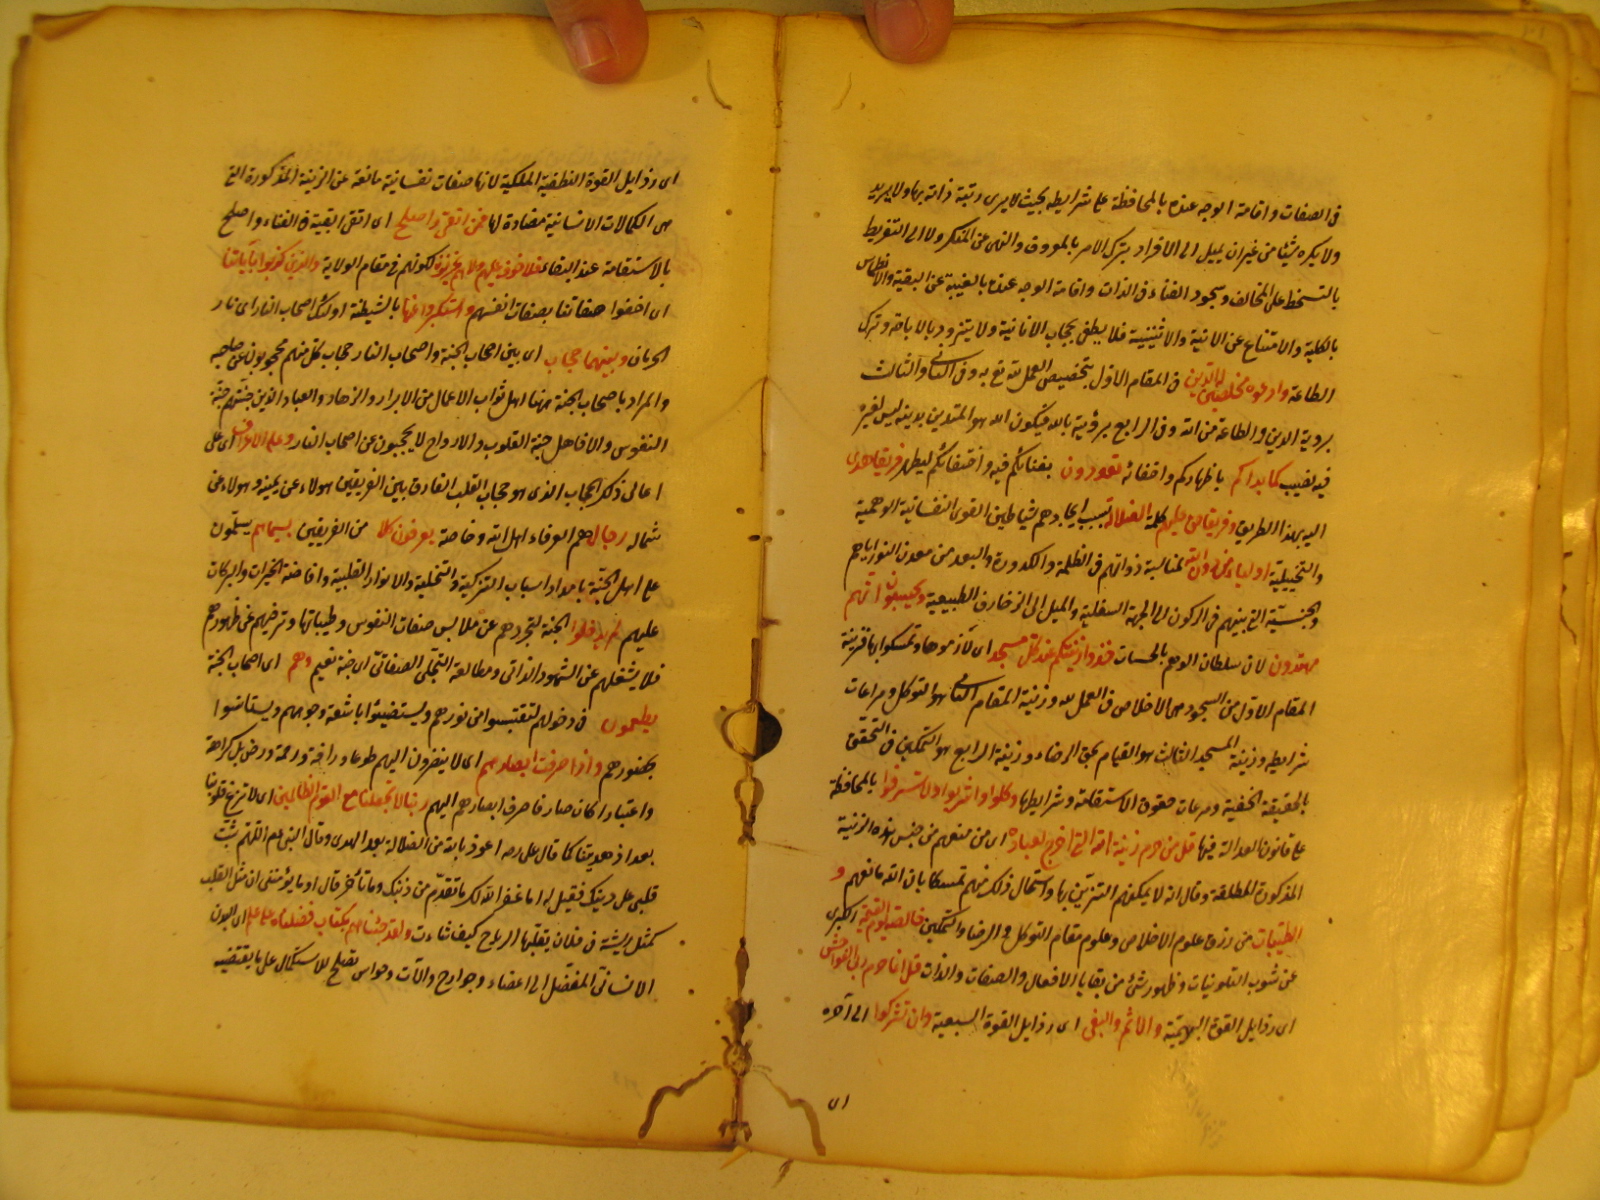 في الصفات واقامة الوجه عنده بالمحافظة على شرايطه بحيث لا يرى زينة ذاته بها ولا يريد
ولا يكره شيئا من غير ان يميل الى الافراد بترك الامر بالمعروف والنهى عن المنكر ولا الى التفريط
بالتسخط على المخالف وسجود الفناء في الذات واقامة الوجه عنده بالغيبة عن البقية والانطماس
بالكلية والامتناع عن الانية والاثنينية فلا يطغى بحجاب الانانية ولا يتزندق بالاباحة وترك
الطاعة وادعوه مخلصين له الدين في المقام الاول بتخصيص العمل لله تع به وفي الثانى والثالث
بروية الدين والطاعة من الله وفي الرابع برؤيته بالله فيكون الله هو المتدين بدينه ليس لغيره
فيه نصيب كما بداكم باظهاركم واختفائه تعودون بفنائكم فيه واختفائكم ليظهر فريقا هدى
اليه بهذا الطريق وفريقا حق عليهم كلمة الضلالة بسبب اتخاذهم شياطين القوى النفسانية الوهمية
والتخييلية اولياء من دون الله لمناسبة ذواتهم في الظلمة والكدورة والبعد من معدن النور اياهم
والجنسية التي بينهم في الركون الى الجهة السفلية والميل الى الزخارف الطبيعية ويحسبون انهم
مهتدون لان سلطان الوهم بالحسبات خذوا زينتكم عند كل مسجد اى لازموها وتمسكوا بها فزينة
المقام الاول من السجود هي الاخلاص في العمل لله وزينة المقام الثانى هو التوكل ومراعات
شرايطه وزينة المسجد الثالث هو القيام بحق الرضاء وزينة الرابع هو التمكين في التحقق
بالحقيقة الحقية ومرعات حقوق الاستقامة وشرايطها وكلوا واشربوا ولا تسرفوا بالمحافظة
على قانون العدالة فيها قل من حرم زينة الله التي اخرج لعباده اى من منعهم من جنس هذه الزينة
المذكورة المطلقة وقال انه لا يمكنهم التزين بها واستحال ذلك منهم تمسكا بان الله مانعهم و
الطيبات من رزق علوم الاخلاص وعلوم مقام التوكل والرضاء والتمكين خالصة يوم القيمة الكبرى
عن شوب التلوينات وظهور شئ من بقايا الافعال والصفات والذات قل انما حرم ربى الفواحش
اى رذايل القوة البهيمية والاثم والبغى اى رذايل القوة السبعية وان تشركوا الى آخره
اى
اى رذايل القوة النطقية الملكية لانها صفات نفسانية مانعة عن الزينة المذكورة التي
هى الكمالات الانسانية مضادة لها فمن اتقى واصلح اى اتقى البقية في الفناء واصلح
بالاستقامة عند البقاء فلا خوف عليهم ولا هم يحزنون لكونهم في مقام الولاية والذين كذبوا بآياتنا
اى اخفوا صفاتنا بصفات انفسهم واستكبروا عنها بالشيطنة اولئك اصحاب النار اى نار
الحرمان وبينهما حجاب اى بين اصحاب الجنة واصحاب النار حجاب كل منهم محجوبون عن صاحبه
والمراد باصحاب الجنة ههنا اهل ثواب الاعمال من الابرار والزهاد والعباد الذين جنتهم جنة
النفوس والا فاهل جنة القلوب والارواح لا يحجبون عن اصحاب النار وعلى الاعراف اى على
اعالى ذلك الحجاب الذى هو حجاب القلب الفارق بين الفريقين هولاء عن يمينه وهولاء عن
شماله رجال هم العرفاء اهل الله وخاصته يعرفون كلا من الفريقين بسيماهم يسلمون
على اهل الجنة بامداد اسباب التزكية والتخلية والانوار القلبية وافاضة الخيرات والبركات
عليهم لم يدخلوا الجنة لتجردهم عن ملابس صفات النفوس وطيباتها وترقيهم عن طورهم
فلا يشغلهم عن الشهود الذاتى ومطالعة التجلى الصفاتى اى جنة نعيم وهم اى اصحاب الجنة
يطمعون في دخولهم ليقتبسوا من نورهم ويستضيئوا باشعة وجوههم ويستانسوا
بحضورهم واذا صرفت ابصارهم اى لا ينظرون اليهم طوعا ورافة ورحمة ورضى بل كراهة
واعتبارا كان صارفا صرف ابصارهم اليهم ربنا لا تجعلنا مع القوم الظالمين اى لا تزغ قلوبنا
بعد اذ هديتنا كما قال على رضه اعوذ بالله من الضلالة بعد الهدى وقال النبى عم اللهم ثبت
قلبى على دينك فقيل له اما غفر الله لك ما تقدم من ذنبك وما تأخر قال او ما يؤمننى ان مثل القلب
كمثل ريشة في فلاة تقلبها الرياح كيف شاءت ولقد جئناهم بكتاب فصلناه على علم اى البدن
الانسانى المفصل الى اعضاء وجوارح وآلات وحواس تصلح للاستكمال على ما يقتضيه